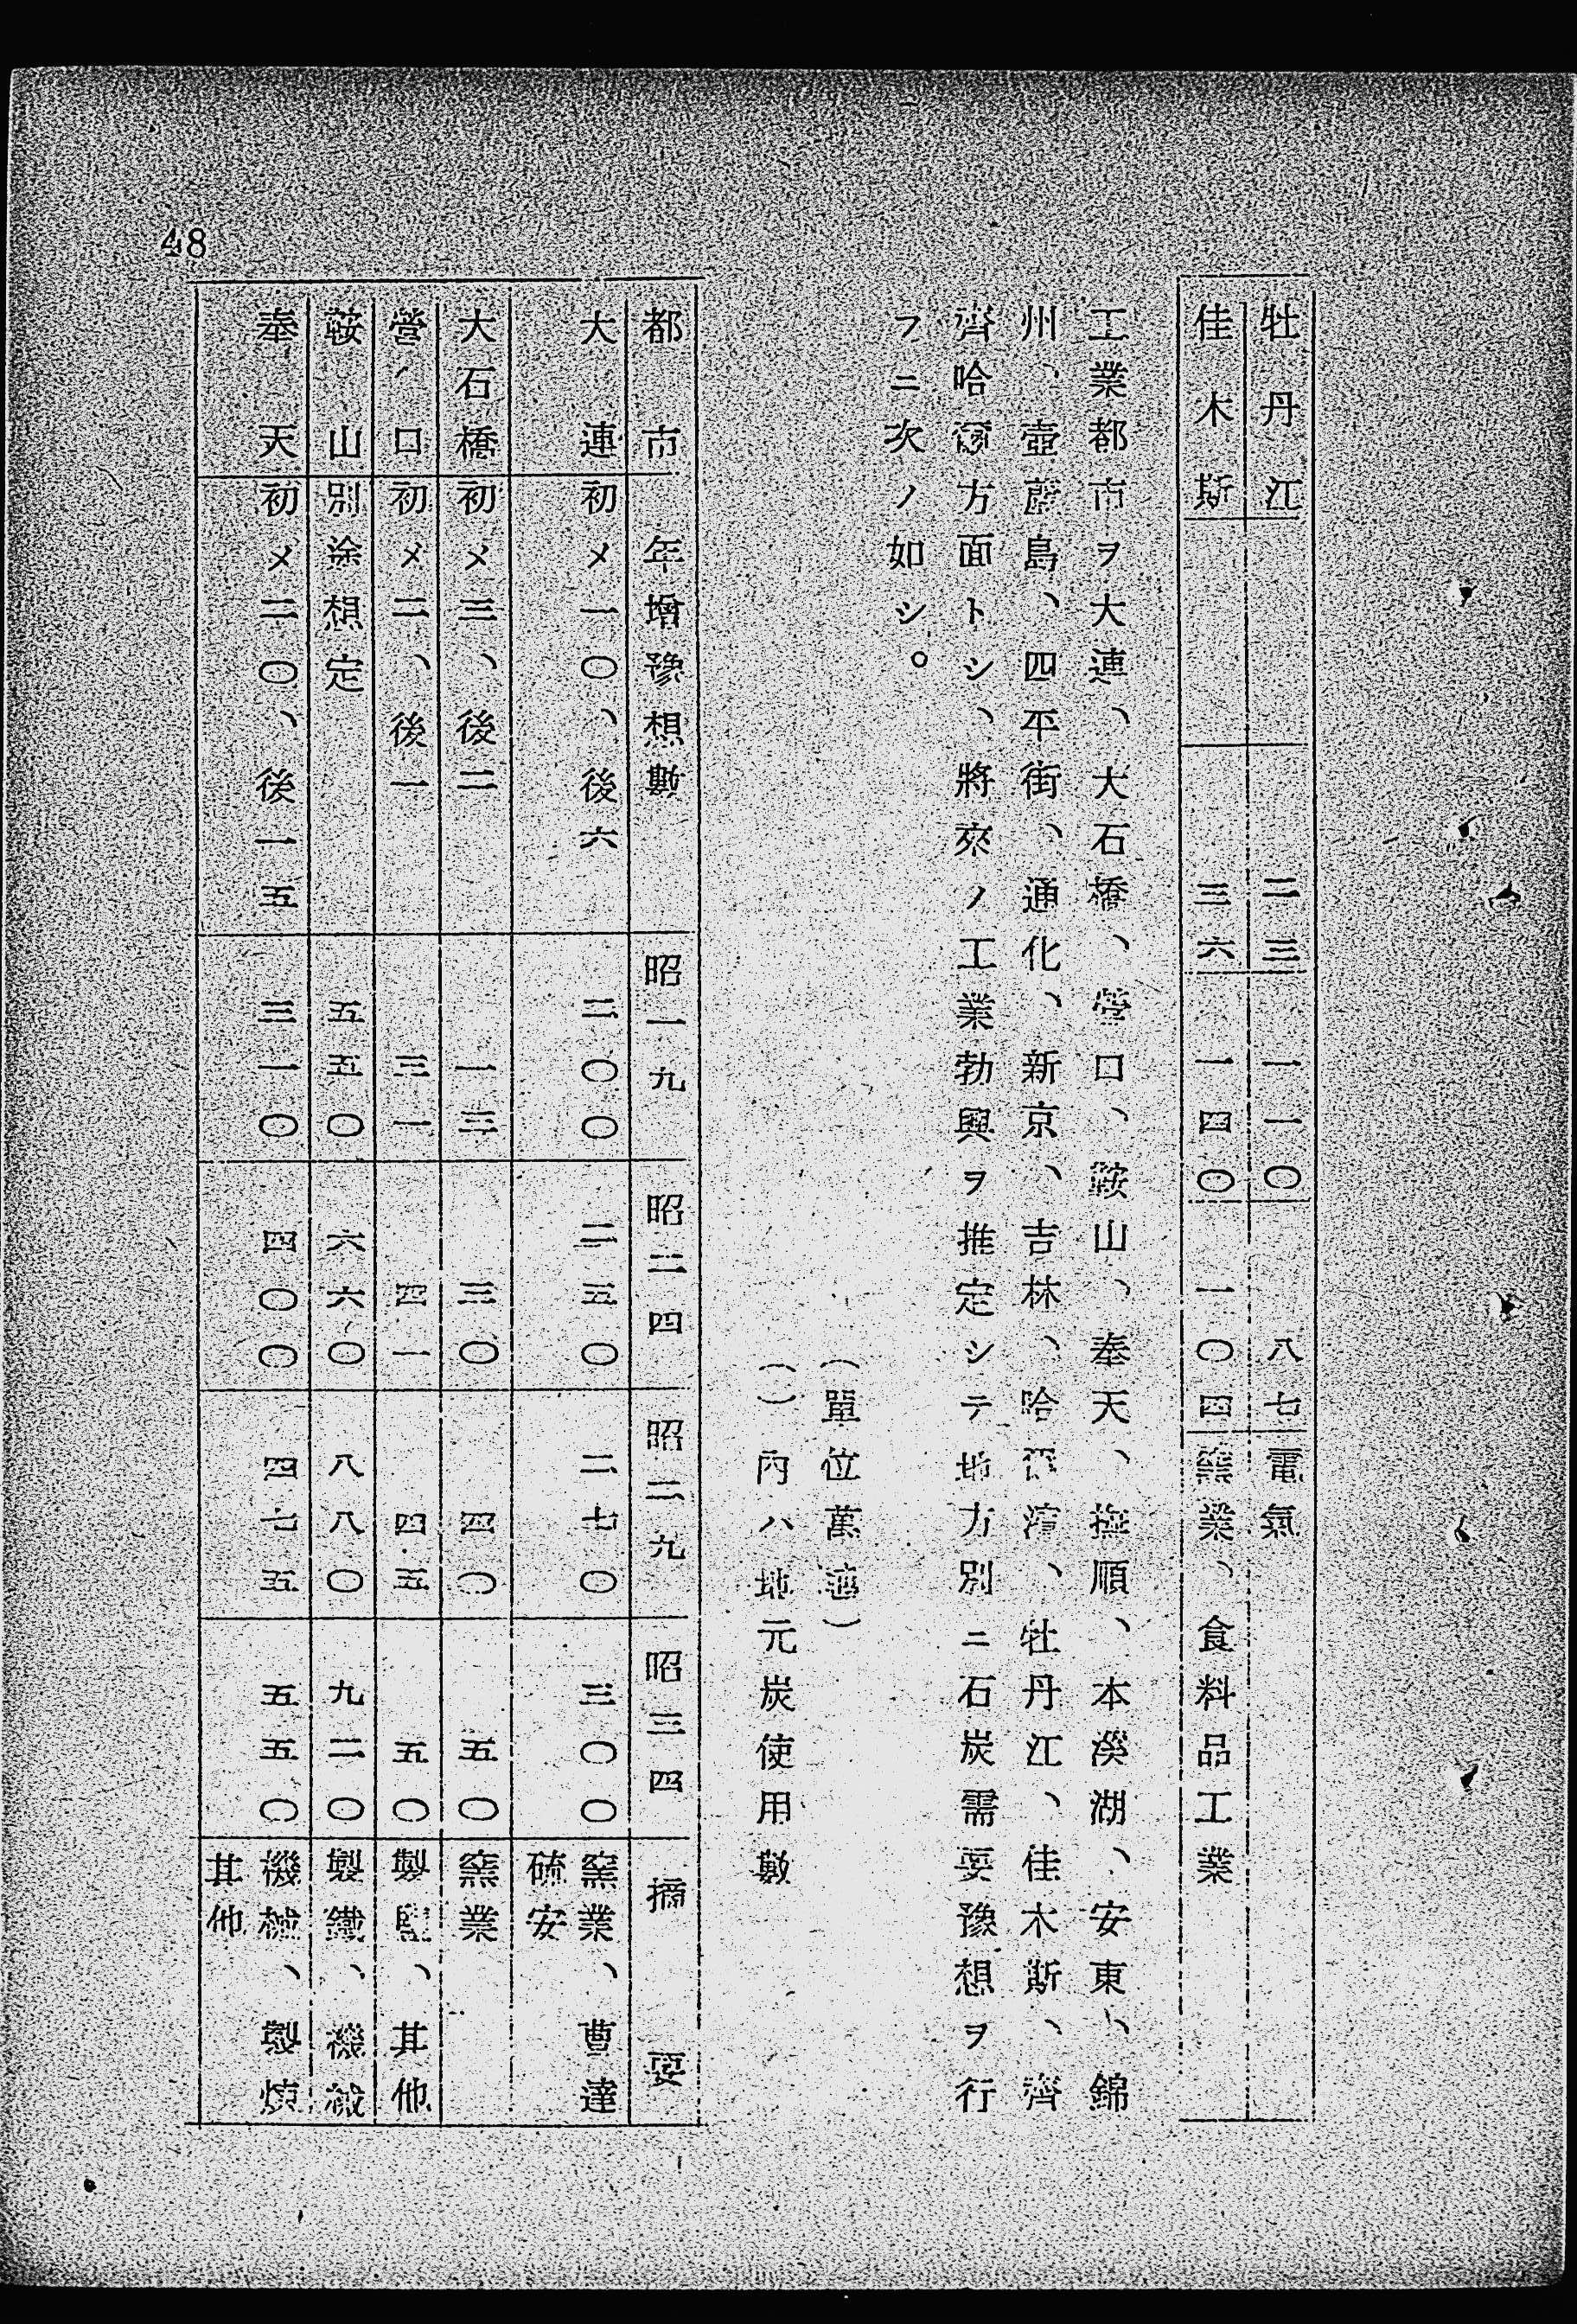 牡丹江 二三 一一〇 八七 電氣
佳木斯 三六 一四〇 一〇四 窯業、食料品工業
工業都市ヲ大連、大石橋、營口、鞍山、奉天、撫順、本溪湖、安東、錦
州、壺蘆島、四平街、通化、新京、吉林、哈爾濱、牡丹江、佳木斯、齊
齊哈爾方面トシ、將來ノ工業勃興ヲ推定シテ地方別ニ石炭需要豫想ヲ行
フニ次ノ如シ。
(單位萬瓲)
( )內ハ地元炭使用數
都市 年增豫想數 昭一九 昭二四 昭二九 昭三四 摘要
大連 初メ一〇、後六 二〇〇 二五〇 二七〇 三〇〇 窯業、曹達
硫安
大石橋 初メ三、後二 一三 三〇 四〇 五〇 窯業
營口 初メ二、後一 三一 四一 四五 五〇 製鹽、其他
鞍山 別途想定 五五〇 六六〇 八八〇 九二〇 製鐵、機械
奉天 初メ二〇、後一五 三一〇 四〇〇 四七五 五五〇 機械、製煉
其他
48